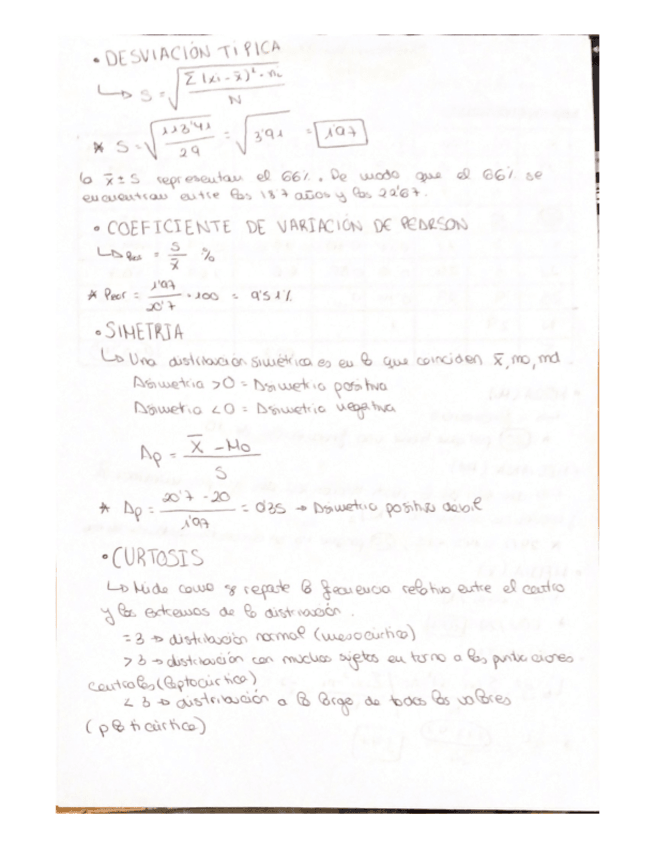 • DESVIACIÓN TÍPICA
↳ S = √(Σ(xi - x̄)² · ni / N)
* S = √(113'41 / 29) = √3'91 = 1'97
x̄ ± S representan el 66%. De modo que el 66% se
encuentran entre los 18'7 años y los 22'67.
• COEFICIENTE DE VARIACIÓN DE PEARSON
↳ = S / x̄ %
* Pear = 1'97 / 20'7 · 100 = 9'51%
• SIMETRIA
↳ Una distribución simétrica es en la que coinciden x̄, mo, md.
Asimetria >0 = Asimetria positiva
Asimetria <0 = Asimetria negativa
Ap = (X̄ - Mo) / S
* Ap = (20'7 - 20) / 1'97 = 0'35 → Asimetria positiva debil
• CURTOSIS
↳ Mide como se reparte la frecuencia relativa entre el centro
y los extremos de la distribución.
= 3 → distribución normal (mesocúrtica)
> 3 → distribución con muchos sujetos en torno a las puntuaciones
centrales (leptocúrtica)
< 3 → distribución a lo largo de todos los valores
(platicúrtica)